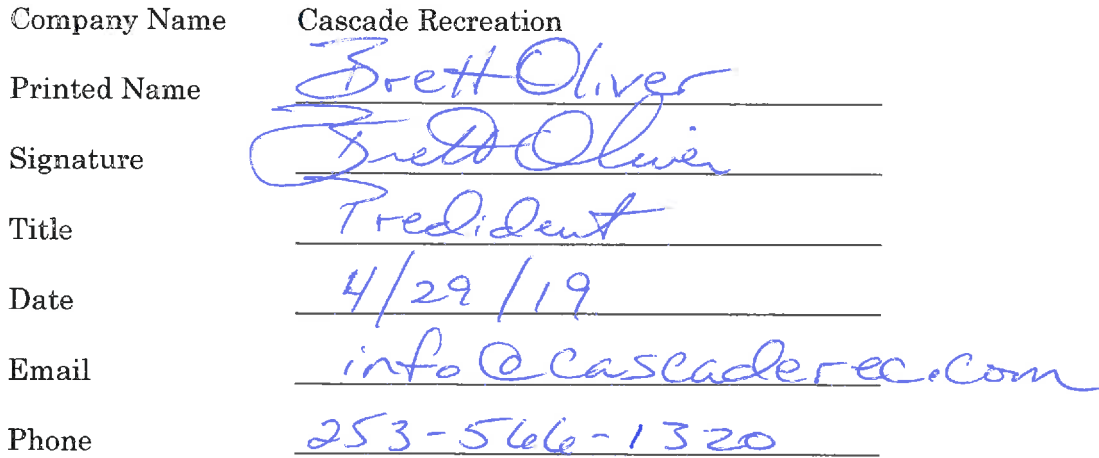 Company Name Cascade Recreation
Printed Name Brett Oliver
Signature Brett Oliver
Title Predident
Date 4/29/19
Email info@cascaderec.com
Phone 253-566-1320